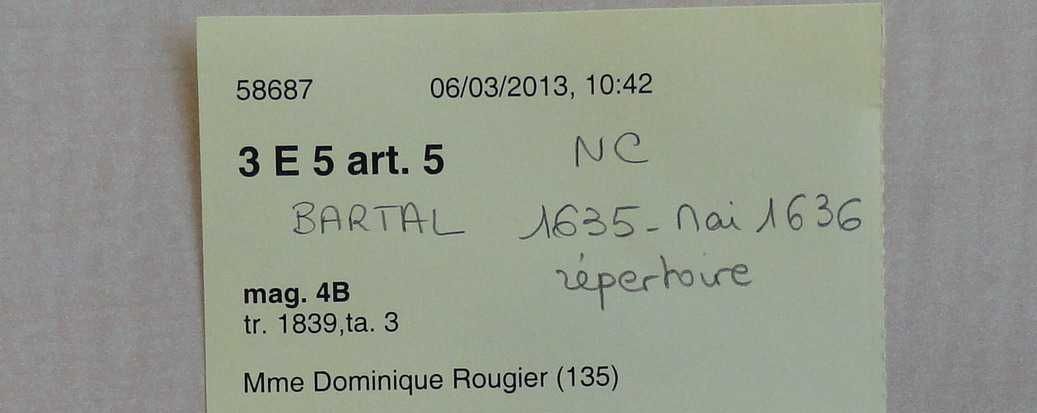 58687 06/03/2013, 10:42
3 E 5 art. 5 NC
BARTAL 1635 - Mai 1636
répertoire
mag. 4B
tr. 1839,ta. 3
Mme Dominique Rougier (135)